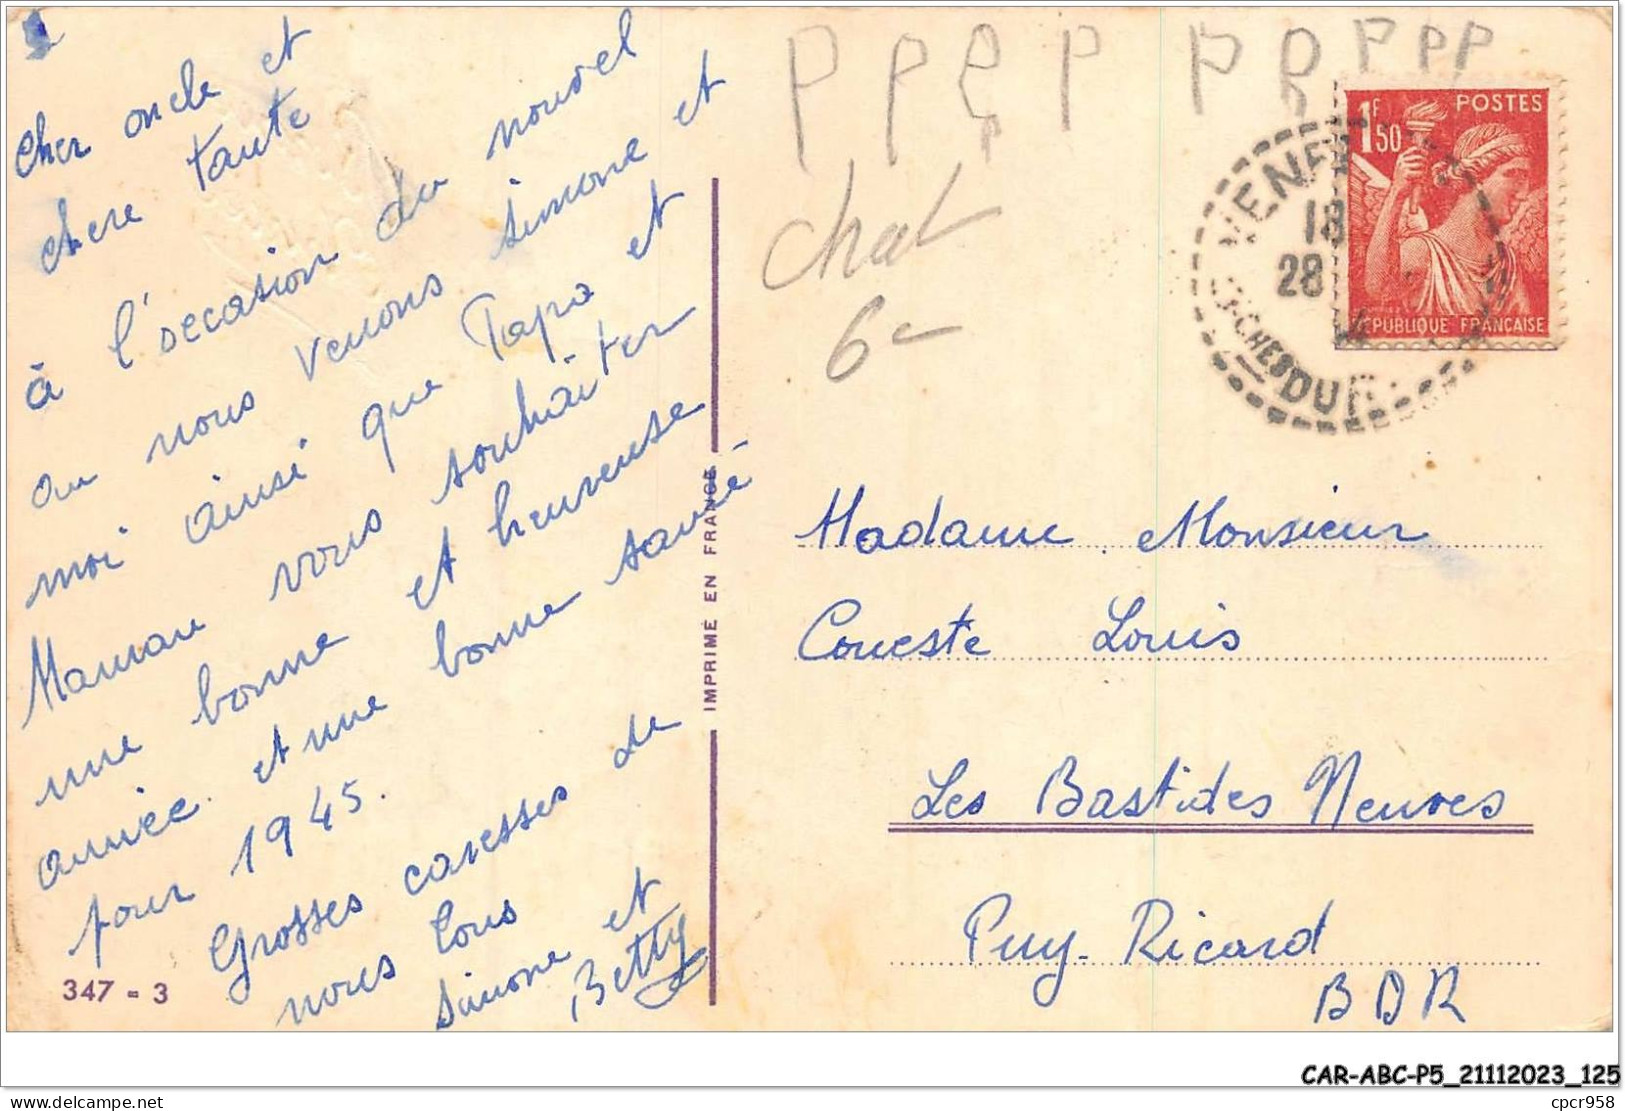 Cher oncle et
chere tante
à l'occasion du nouvel
an nous venons Simone et
moi ainsi que Papa et
Maman vous souhaiter
une bonne et heureuse
année et une bonne santé
pour 1945.
Grosses caresses de
nous tous
Simone et
Betty
347 - 3
IMPRIME EN FRANCE
P P P P P P P P P
chat
6-
1F50
POSTES
REPUBLIQUE FRANÇAISE
18
28
CHES DU R
Madame Monsieur
Coueste Louis
Les Bastides Neuves
Puy-Ricard
BDR
CAR-ABC-P5_21112023_125
delcampe.net
cpcr958